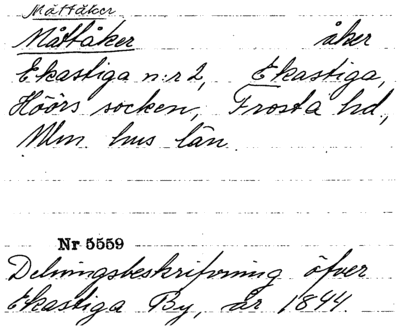 Måttåker
Måttåker åker
Ekastiga n:r 2, Ekastiga,
Höörs socken, Frosta hd,
Mlm hus län.
Nr 5559
Delningsbeskrifning öfver
Ekastiga By, år 1844.